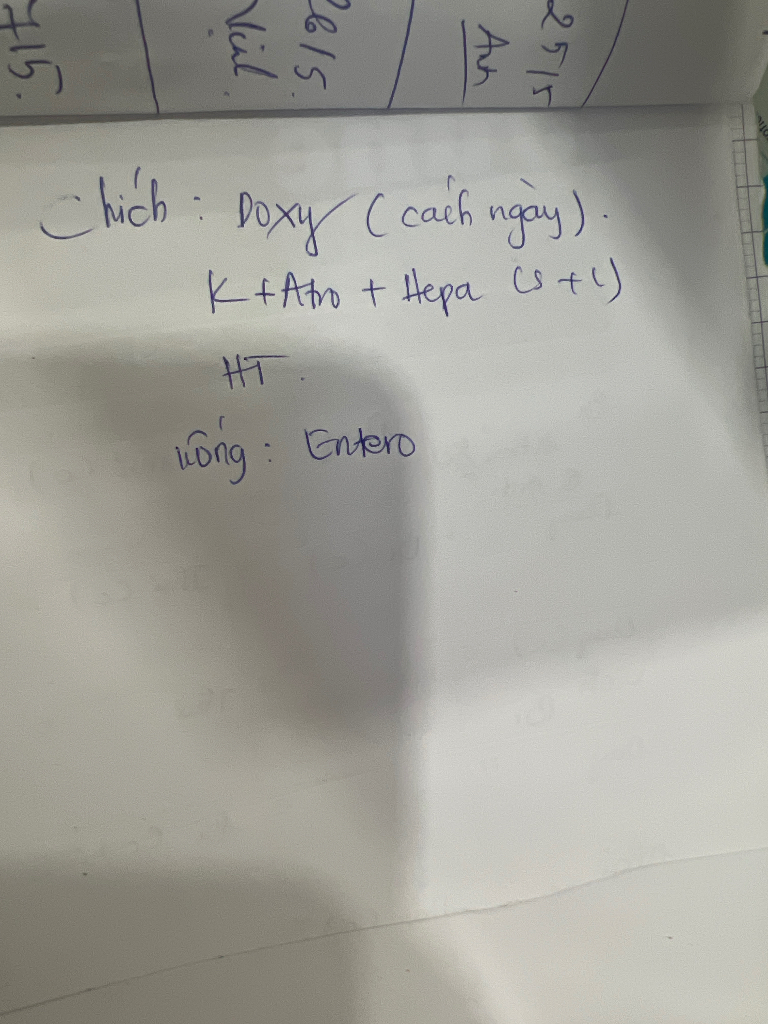 25/5
An
26/5.
Vial.
7/5.
Chích : Doxy (cách ngày).
K + Atro + Hepa (S + C)
HT.
uống : Entero